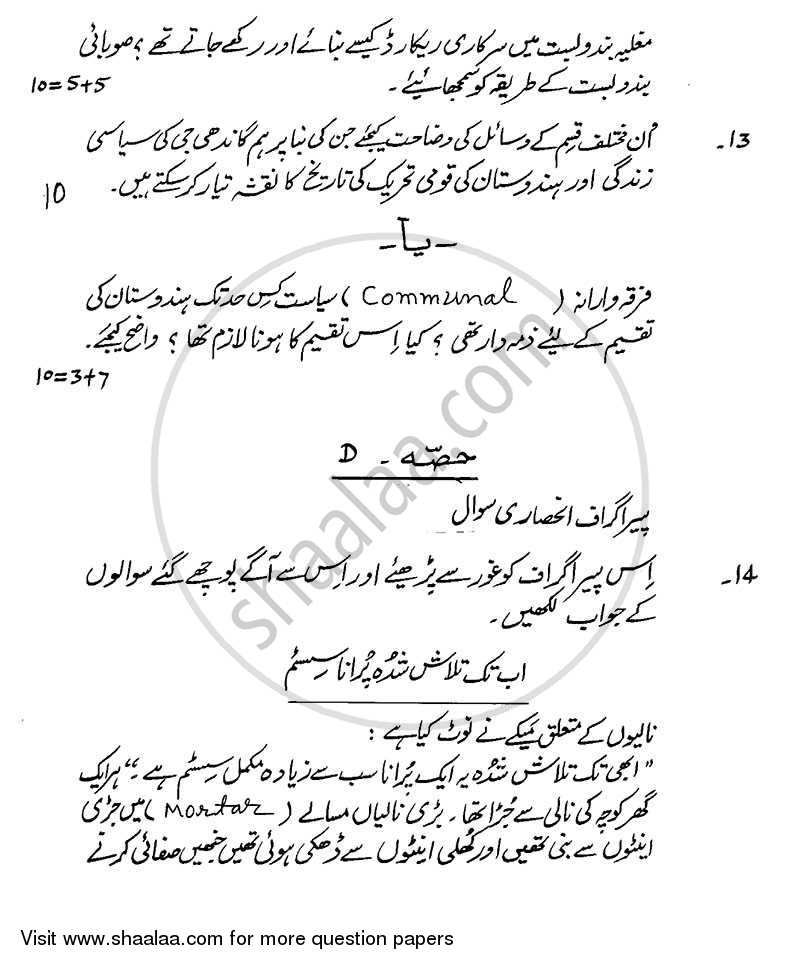 مغلیہ بندوبست میں سرکاری ریکارڈ کیسے بنائے اور رکھے جاتے تھے ؟ صوبائی
بندوبست کے طریقہ کو سمجھائیے ۔
10=5+5
13۔ اُن مختلف قسم کے وسائل کی وضاحت کیجئے جن کی بنا پر ہم گاندھی جی کی سیاسی
زندگی اور ہندوستان کی قومی تحریک کی تاریخ کا نقشہ تیار کر سکتے ہیں۔
10
- یا -
فرقہ وارانہ ( Communal ) سیاست کس حد تک ہندوستان کی
تقسیم کے لئے ذمہ دار تھی ؟ کیا اِس تقسیم کا ہونا لازم تھا ؟ واضح کیجئے۔
10=3+7
حصّہ ۔ D
پیراگراف انحصاری سوال
14۔ اِس پیراگراف کو غور سے پڑھیئے اور اِس سے آگے پوچھے گئے سوالوں
کے جواب لکھیں ۔
اب تک تلاش شدہ پُرانا سسٹم
نالیوں کے متعلق میکے نے نوٹ کیا ہے :
" ابھی تک تلاش شدہ یہ ایک پُرانا سب سے زیادہ مکمل سسٹم ہے ۔" ہر ایک
گھر کوچہ کی نالی سے جُڑا تھا ۔ بڑی نالیاں مسالے ( Mortar ) میں جڑی
اینٹوں سے بنی تھیں اور کُھلی اینٹوں سے ڈھکی ہوئی تھیں جنھیں صفائی کرنے
shaalaa.com
Visit www.shaalaa.com for more question papers